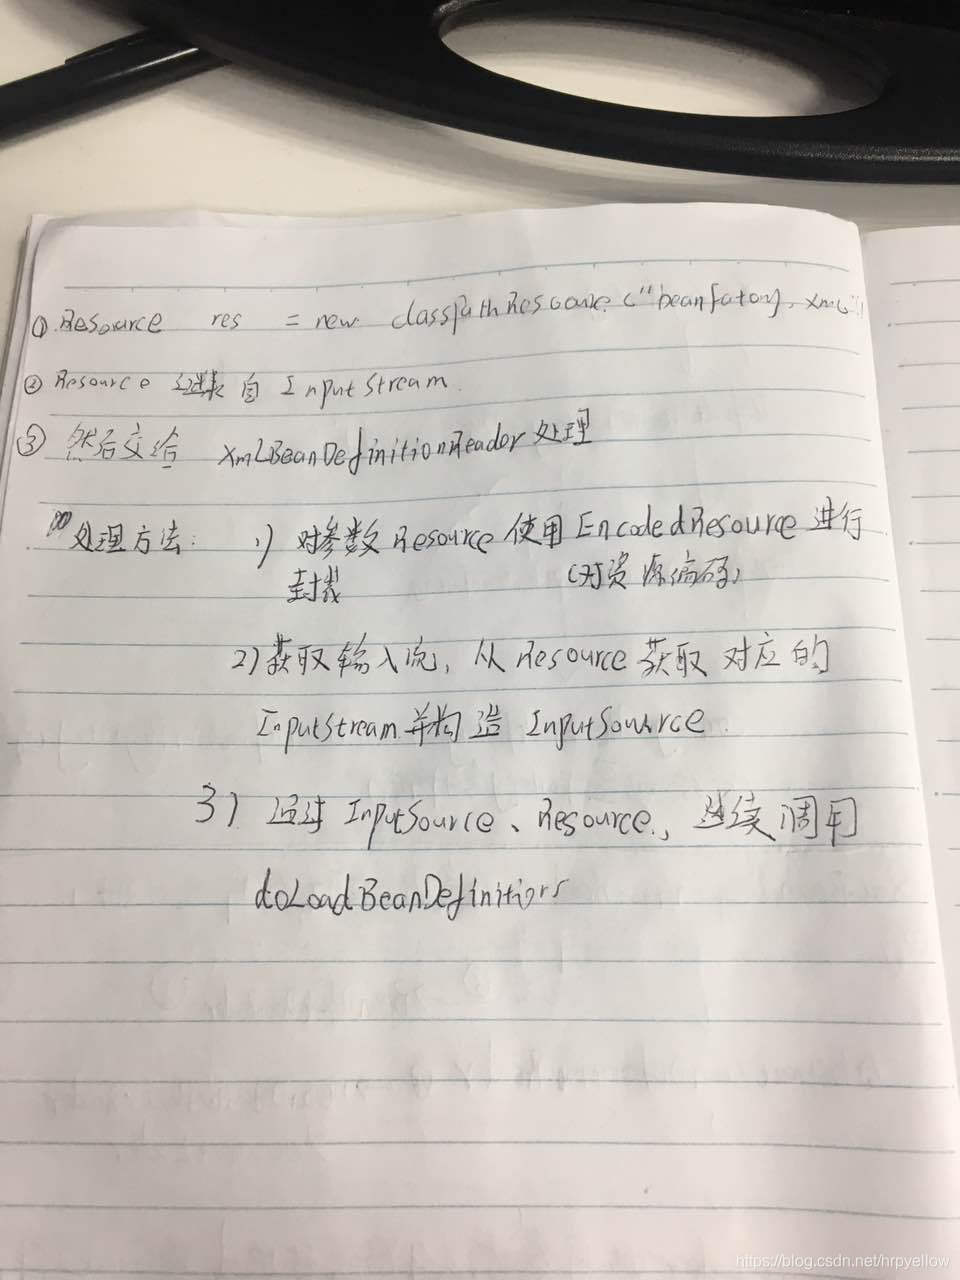 ① Resource res = new ClassPathResource("beanfatory.xml")
② Resource 继承自 InputStream.
③ 然后交给 XmLBeanDefinitionReader处理
处理方法: 1) 对参数Resource使用EncodedResource进行
封装 (对资源编码)
2)获取输入流, 从Resource获取对应的
InputStream并构造 InputSource.
3) 通过InputSource、Resource, 继续调用
doLoadBeanDefinitions
https://blog.csdn.net/hrpyellow